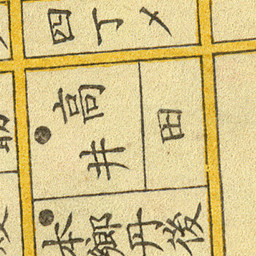 四丁メ
高井
田
本郷丹後